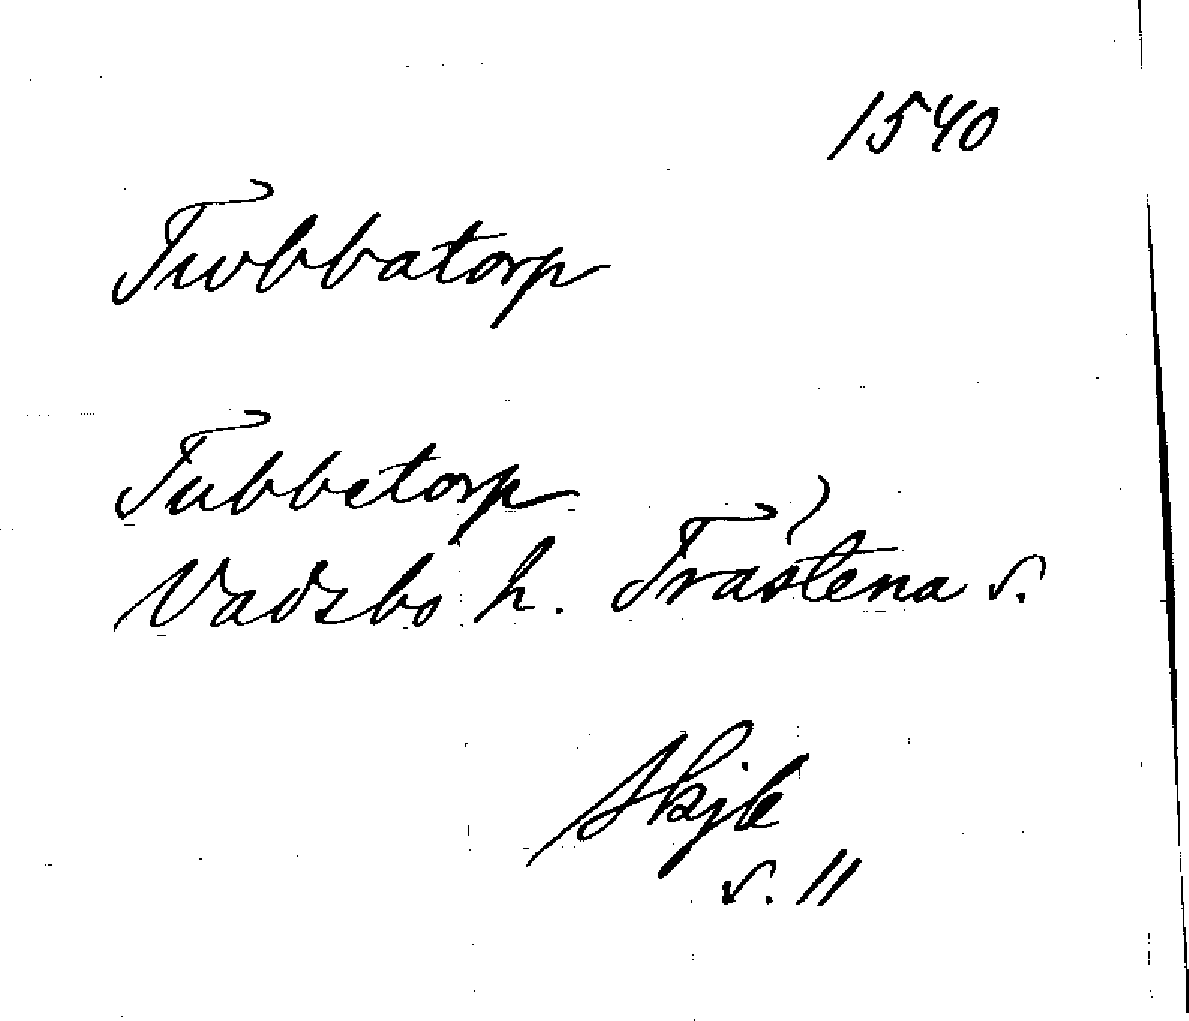 1540
Twbbatorp
Tubbetorp
Vadsbo h. Trästena s.
Skjb
s. 11